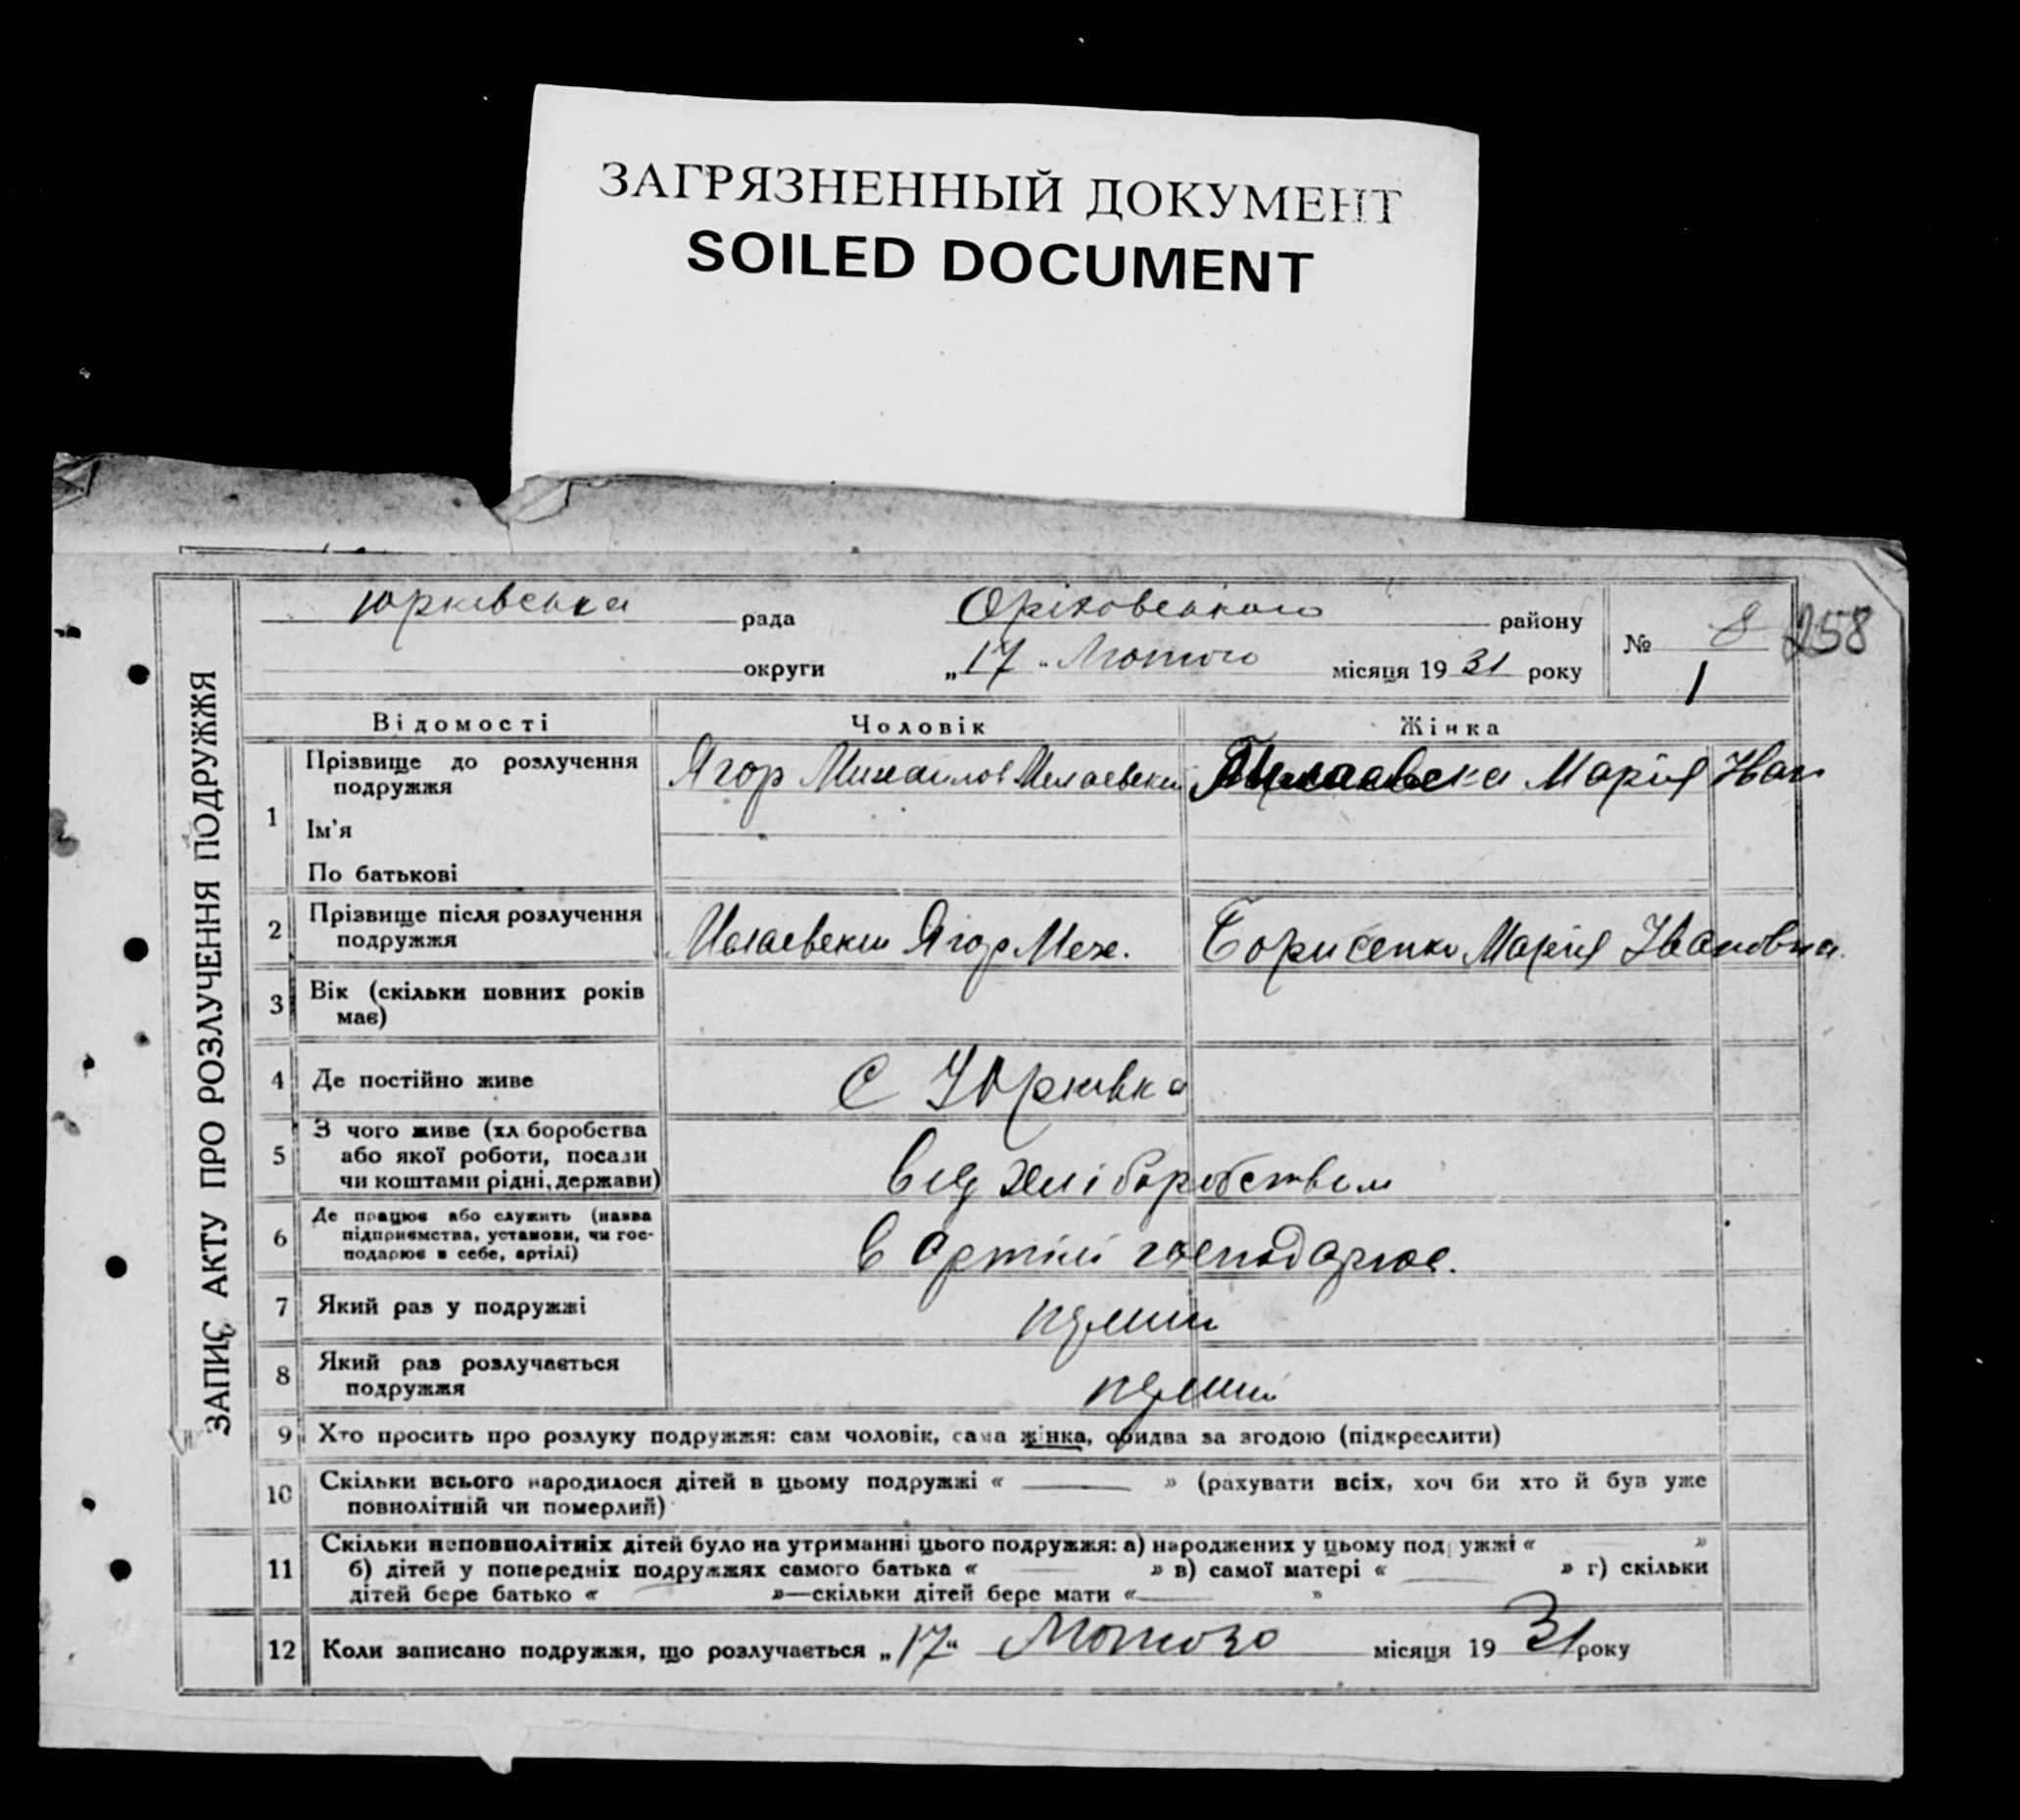 ЗАГРЯЗНЕННЫЙ ДОКУМЕНТ
SOILED DOCUMENT
ЗАПИС АКТУ ПРО РОЗЛУЧЕННЯ ПОДРУЖЖЯ
Юрківська рада Оріховського району № 8 258
округи „17" Лютого місяця 1931 року 1
Відомості Чоловік Жінка
1 Прізвище до розлучення подружжя Ягор Михаилов Марія Иван
Ім'я
По батькові
2 Прізвище після розлучення подружжя Ягор Мех. Борисенко Марія Ивановна
3 Вік (скільки повних років має)
4 Де постійно живе С Юрківка
5 З чого живе (хл боробства
або якої роботи, посади
чи коштами рідні, держави) від хліборобством
6 Де працює або служить (назва
підприємства, установи, чи гос-
подарює в себе, артілі) в артілі господарює.
7 Який раз у подружжі перший
8 Який раз розлучається подружжя перший
9 Хто просить про розлуку подружжя: сам чоловік, сама жінка, обидва за згодою (підкреслити)
10 Скільки всього народилося дітей в цьому подружжі « — » (рахувати всіх, хоч би хто й був уже
повнолітній чи померлий)
11 Скільки неповнолітніх дітей було на утриманні цього подружжя: а) народжених у цьому подружжі « »
б) дітей у попередніх подружжях самого батька « — » в) самої матері « — » г) скільки
дітей бере батько « »—скільки дітей бере мати «— »
12 Коли записано подружжя, що розлучається „17" Лютого місяця 1931 року